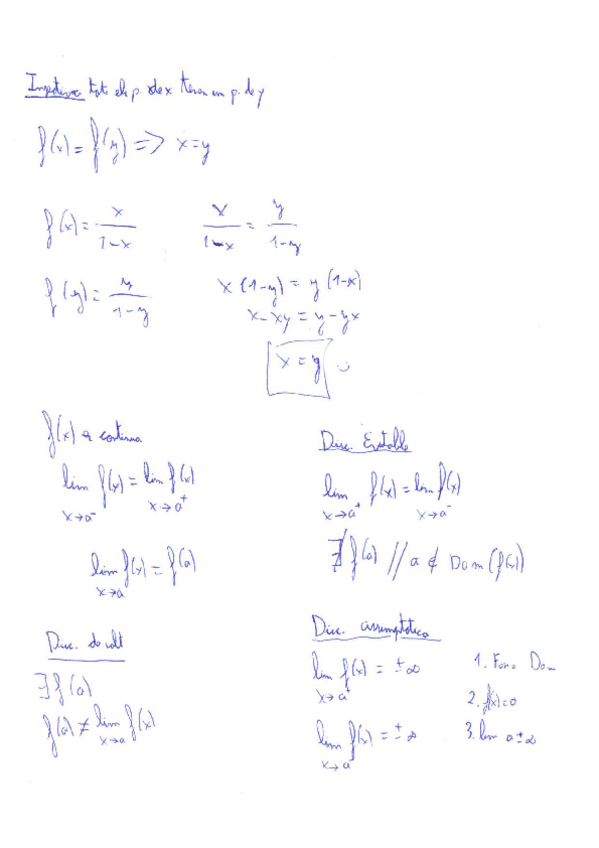 Injectiva tots els p. de x tenen un p. de y
f(x) = f(y) => x = y
f(x) = x/(1-x)
x/(1-x) = y/(1-y)
f(y) = y/(1-y)
x(1-y) = y(1-x)
x - xy = y - yx
x = y
f(x) és contínua
lim x→a⁻ f(x) = lim x→a⁺ f(x)
lim x→a f(x) = f(a)
Disc. Evitable
lim x→a⁺ f(x) = lim x→a⁻ f(x)
∄ f(a) // a ∉ Dom(f(x))
Disc. de salt
∃ f(a)
f(a) ≠ lim x→a f(x)
Disc. assimptòtica
lim x→a⁺ f(x) = ±∞
lim x→a⁻ f(x) = ±∞
1. Fora Dom
2. f(x)=0
3. lim a ±∞